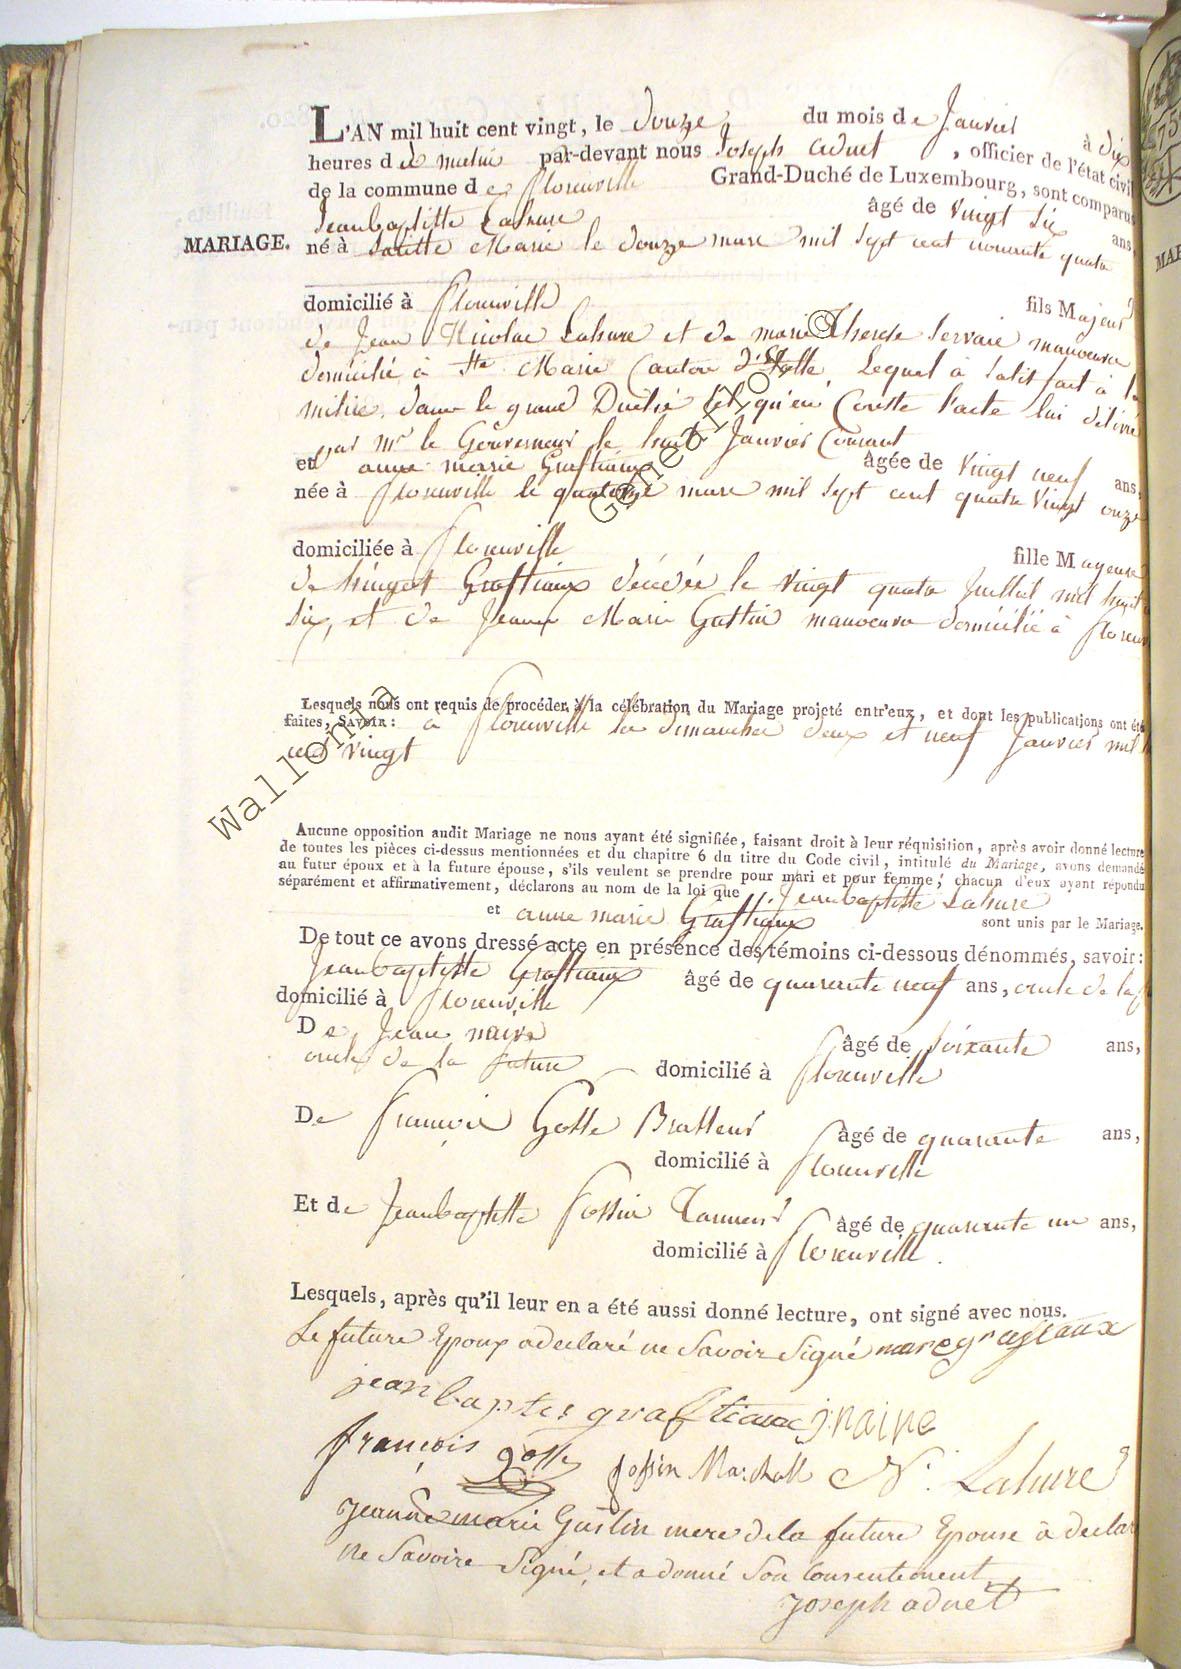 L'AN mil huit cent vingt, le Douze du mois de Janvier à dix
heures d de matin par-devant nous Joseph adnet, officier de l'état civil
de la commune de florenville Grand-Duché de Luxembourg, sont comparus
Jeanbaptiste Lahure âgé de vingt six ans,
MARIAGE. né à Marie le douze mars mil sept cent nonante quatre
domicilié à florenville fils Majeur
de Jean Nicolas Lahure et de marie Therese Servais manoeuvre
domicilié à Ste Marie Canton d'Etalle, Lequel à satisfait à la
milice dans le grand Duché tel qu'en Conste l'acte lui délivré
par Mr le Gouverneur le huit Janvier Courant
et anne marie Grastiaux âgée de vingt neuf ans,
née à florenville le quatorze mars mil sept cent quatre vingt onze
domiciliée à florenville fille Majeure
de Grastiaux décédée le vingt quatre Juillet mil huit
six, et de Jeanne Marie Gustin manoeuvre domicilié à floren
Lesquels nous ont requis de procéder à la célébration du Mariage projeté entr'eux, et dont les publications ont été
faites, SAVOIR: a florenville les dimanches deux et neuf Janvier mil
cent vingt
Aucune opposition audit Mariage ne nous ayant été signifiée, faisant droit à leur réquisition, après avoir donné lecture
de toutes les pièces ci-dessus mentionnées et du chapitre 6 du titre du Code civil, intitulé du Mariage, avons demandé
au futur époux et à la future épouse, s'ils veulent se prendre pour mari et pour femme; chacun d'eux ayant répondu
séparément et affirmativement, déclarons au nom de la loi que Jeanbaptiste Lahure
et anne marie Grastiaux sont unis par le Mariage.
De tout ce avons dressé acte en présence des témoins ci-dessous dénommés, savoir:
Jeanbaptiste Grastiaux âgé de quarante neuf ans, oncle de la f
domicilié à florenville
De Jean naive âgé de soixante ans,
oncle de la future domicilié à florenville
De François Gosse Brasseur âgé de quarante ans,
domicilié à florenville
Et de Jeanbaptiste fossin Tanneur âgé de quarante un ans,
domicilié à florenville.
Lesquels, après qu'il leur en a été aussi donné lecture, ont signé avec nous.
Le future Epoux a declaré ne Savoir Signé
jean baptes j: naive
françois Gosse fossin N: Lahure
Jeanne marie Gustin mere de la future Epouse à declar
ne Savoire Signé, et a donné Son Consentement
Joseph adnet
Wallonia © Genealo